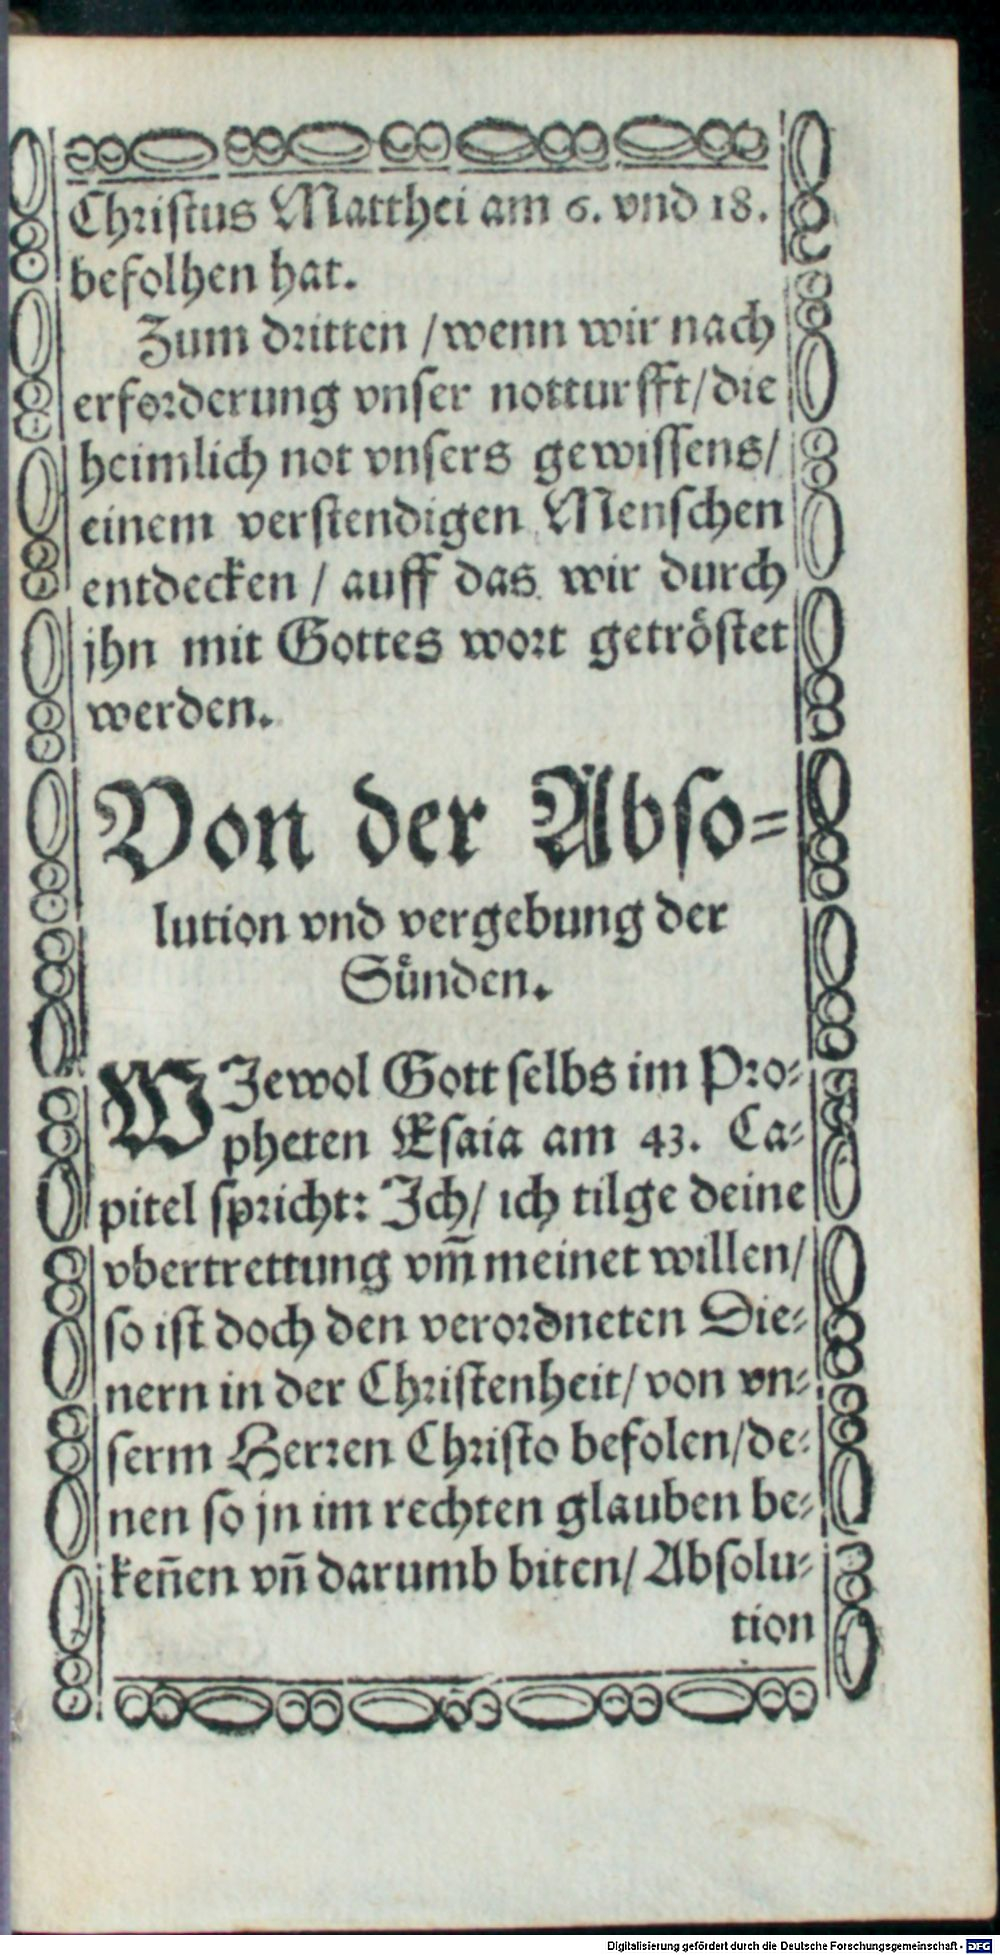 Chriſtus Matthei am 6. vnd 18.
befolhen hat.
Zum dritten / wenn wir nach
erforderung vnſer notturfft / die
heimlich not vnſers gewiſſens /
einem verſtendigen Menſchen
entdecken / auff das wir durch
jhn mit Gottes wort getröſtet
werden.
Von der Abſo-
lution vnd vergebung der
Sünden.
WJewol Gott ſelbs im Pro-
pheten Eſaia am 43. Ca-
pitel ſpricht: Jch / ich tilge deine
vbertrettung vm̃ meinet willen /
ſo iſt doch den verordneten Die-
nern in der Chriſtenheit / von vn-
ſerm Herren Chriſto befolen / de-
nen ſo jn im rechten glauben be-
keñen vñ darumb biten / Abſolu-
tion
Digitalisierung gefördert durch die Deutsche Forschungsgemeinschaft - DFG